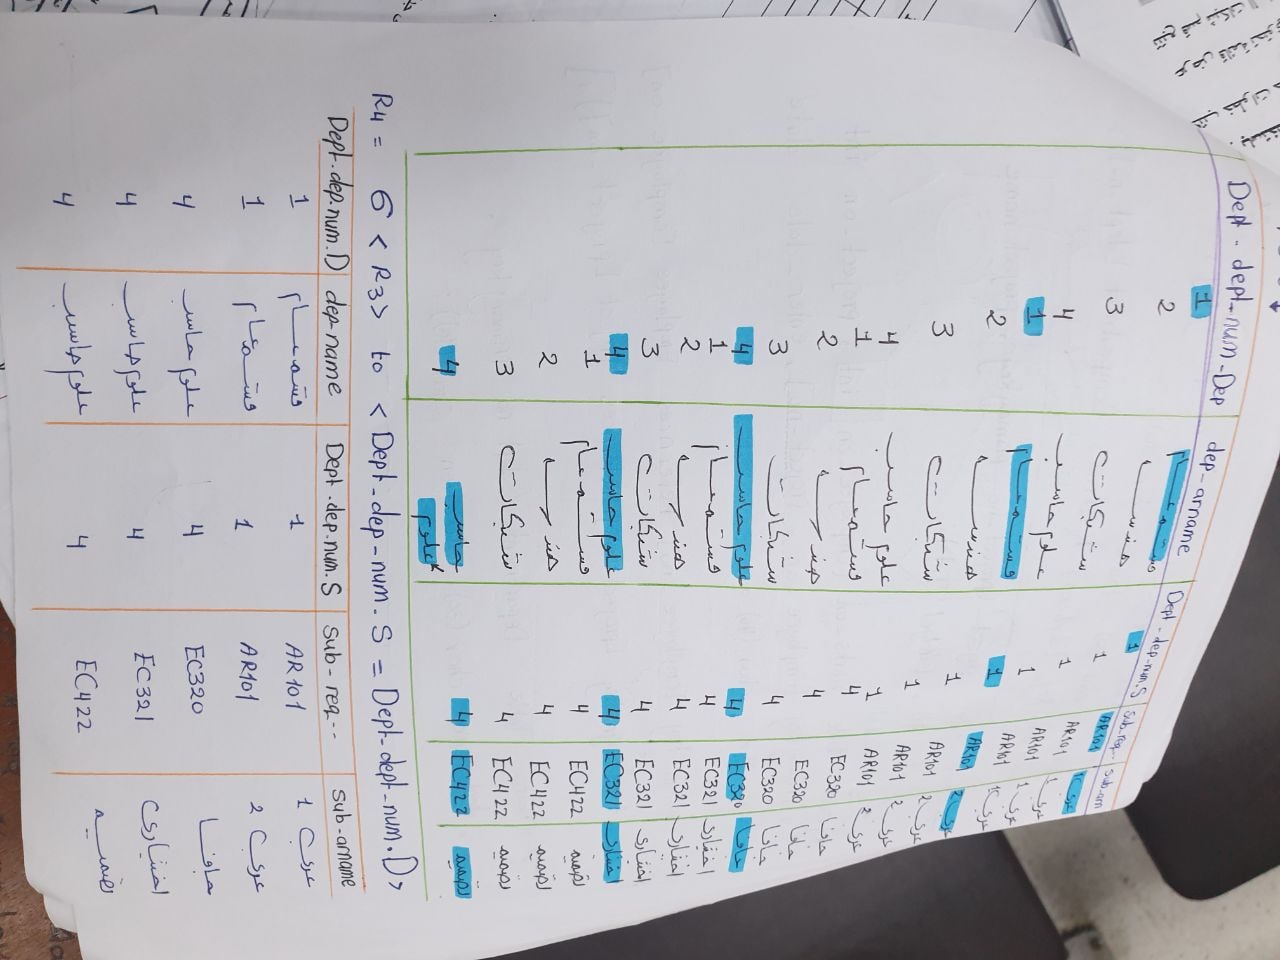 Dept-dept-num-Dep dep-arname Dept-dep-num.S Sub-req-- sub-arn
1 قسم عام 1 AR101 عربي 1
2 هندسة 1 AR101 عربي 1
3 شبكات 1 AR101 عربي 1
4 علوم حاسب 1 AR101 عربي 1
1 قسم عام 1 AR101 عربي 2
2 هندسة 1 AR101 عربي 2
3 شبكات 1 AR101 عربي 2
4 علوم حاسب 1 AR101 عربي 2
1 قسم عام 4 EC320 جافا
2 هندسة 4 EC320 جافا
3 شبكات 4 EC320 جافا
4 علوم حاسب 4 EC320 جافا
1 قسم عام 4 EC321 اختياري
2 هندسة 4 EC321 اختياري
3 شبكات 4 EC321 اختياري
4 علوم حاسب 4 EC321 اختياري
1 قسم عام 4 EC422
2 هندسة 4 EC422
3 شبكات 4 EC422
4 علوم حاسب 4 EC422
R4 = σ < R3 > to < Dept-dep-num.S = Dept-dept-num.D >
Dept.dep.num.D dep-name Dept.dep.num.S Sub-req-- Sub-arname
1 قسم عام 1 AR101 عربي 1
1 قسم عام 1 AR101 عربي 2
4 علوم حاسب 4 EC320 جافا
4 علوم حاسب 4 EC321 اختياري
4 علوم حاسب 4 EC422